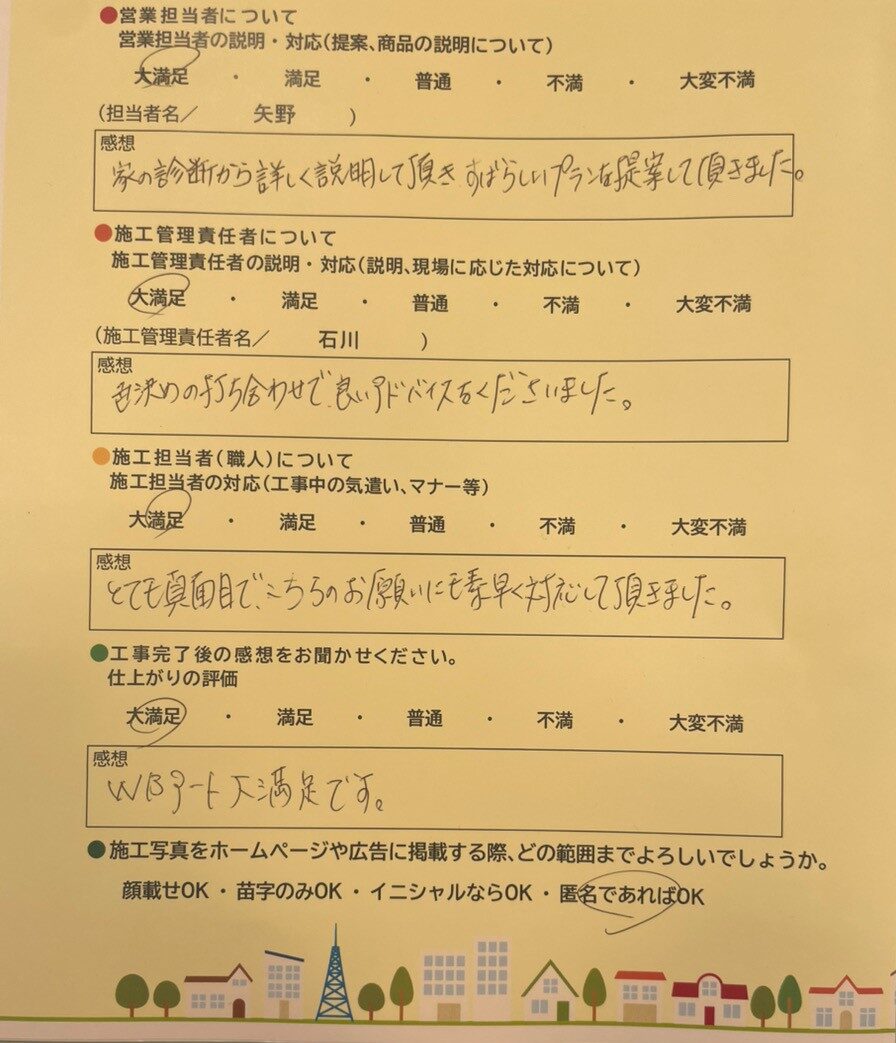 ●営業担当者について
営業担当者の説明・対応(提案、商品の説明について)
大満足 ・ 満足 ・ 普通 ・ 不満 ・ 大変不満
(担当者名／ 矢野 )
感想
家の診断から詳しく説明して頂き すばらしいプランを提案して頂きました。
●施工管理責任者について
施工管理責任者の説明・対応(説明、現場に応じた対応について)
大満足 ・ 満足 ・ 普通 ・ 不満 ・ 大変不満
(施工管理責任者名／ 石川 )
感想
色決めの打ち合わせで良いアドバイスをくださいました。
●施工担当者(職人)について
施工担当者の対応(工事中の気遣い、マナー等)
大満足 ・ 満足 ・ 普通 ・ 不満 ・ 大変不満
感想
とても真面目で、こちらのお願いにも素早く対応して頂きました。
●工事完了後の感想をお聞かせください。
仕上がりの評価
大満足 ・ 満足 ・ 普通 ・ 不満 ・ 大変不満
感想
WBアート大満足です。
●施工写真をホームページや広告に掲載する際、どの範囲までよろしいでしょうか。
顔載せOK ・ 苗字のみOK ・ イニシャルならOK ・ 匿名であればOK